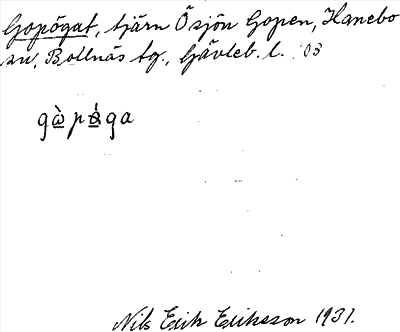 Gopögat, tjärn Ö sjön Gopen, Hanebo
sn, Bollnäs tg., Gävleb. l. 03
gὼpǿga
Nils Erik Erikson 1931.